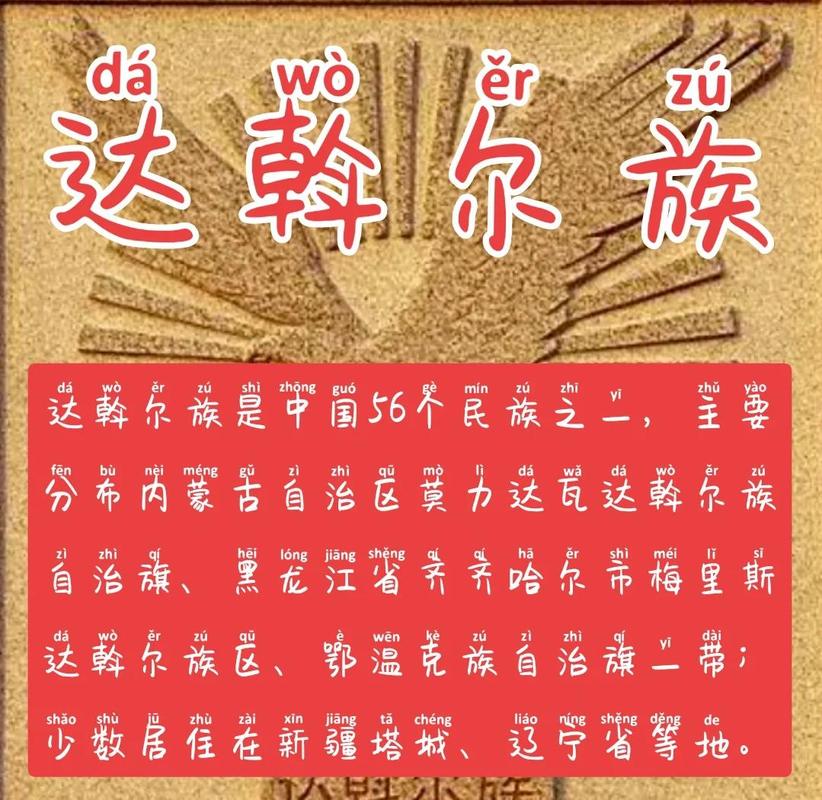 dá wò ěr zú
达斡尔族
dá wò ěr zú shì zhōng guó gè mín zú zhī yī zhǔ yào
达斡尔族是中国56个民族之一，主要
fēn bù nèi méng gǔ zì zhì qū mò lì dá wǎ dá wò ěr zú
分布内蒙古自治区莫力达瓦达斡尔族
zì zhì qí hēi lóng jiāng shěng qí qí hā ěr shì méi lǐ sī
自治旗、黑龙江省齐齐哈尔市梅里斯
dá wò ěr zú qū è wēn kè zú zì zhì qí yī dài
达斡尔族区、鄂温克族自治旗一带；
shǎo shù jū zhù zài xīn jiāng tǎ chéng liáo níng shěng děng de
少数居住在新疆塔城、辽宁省等地。